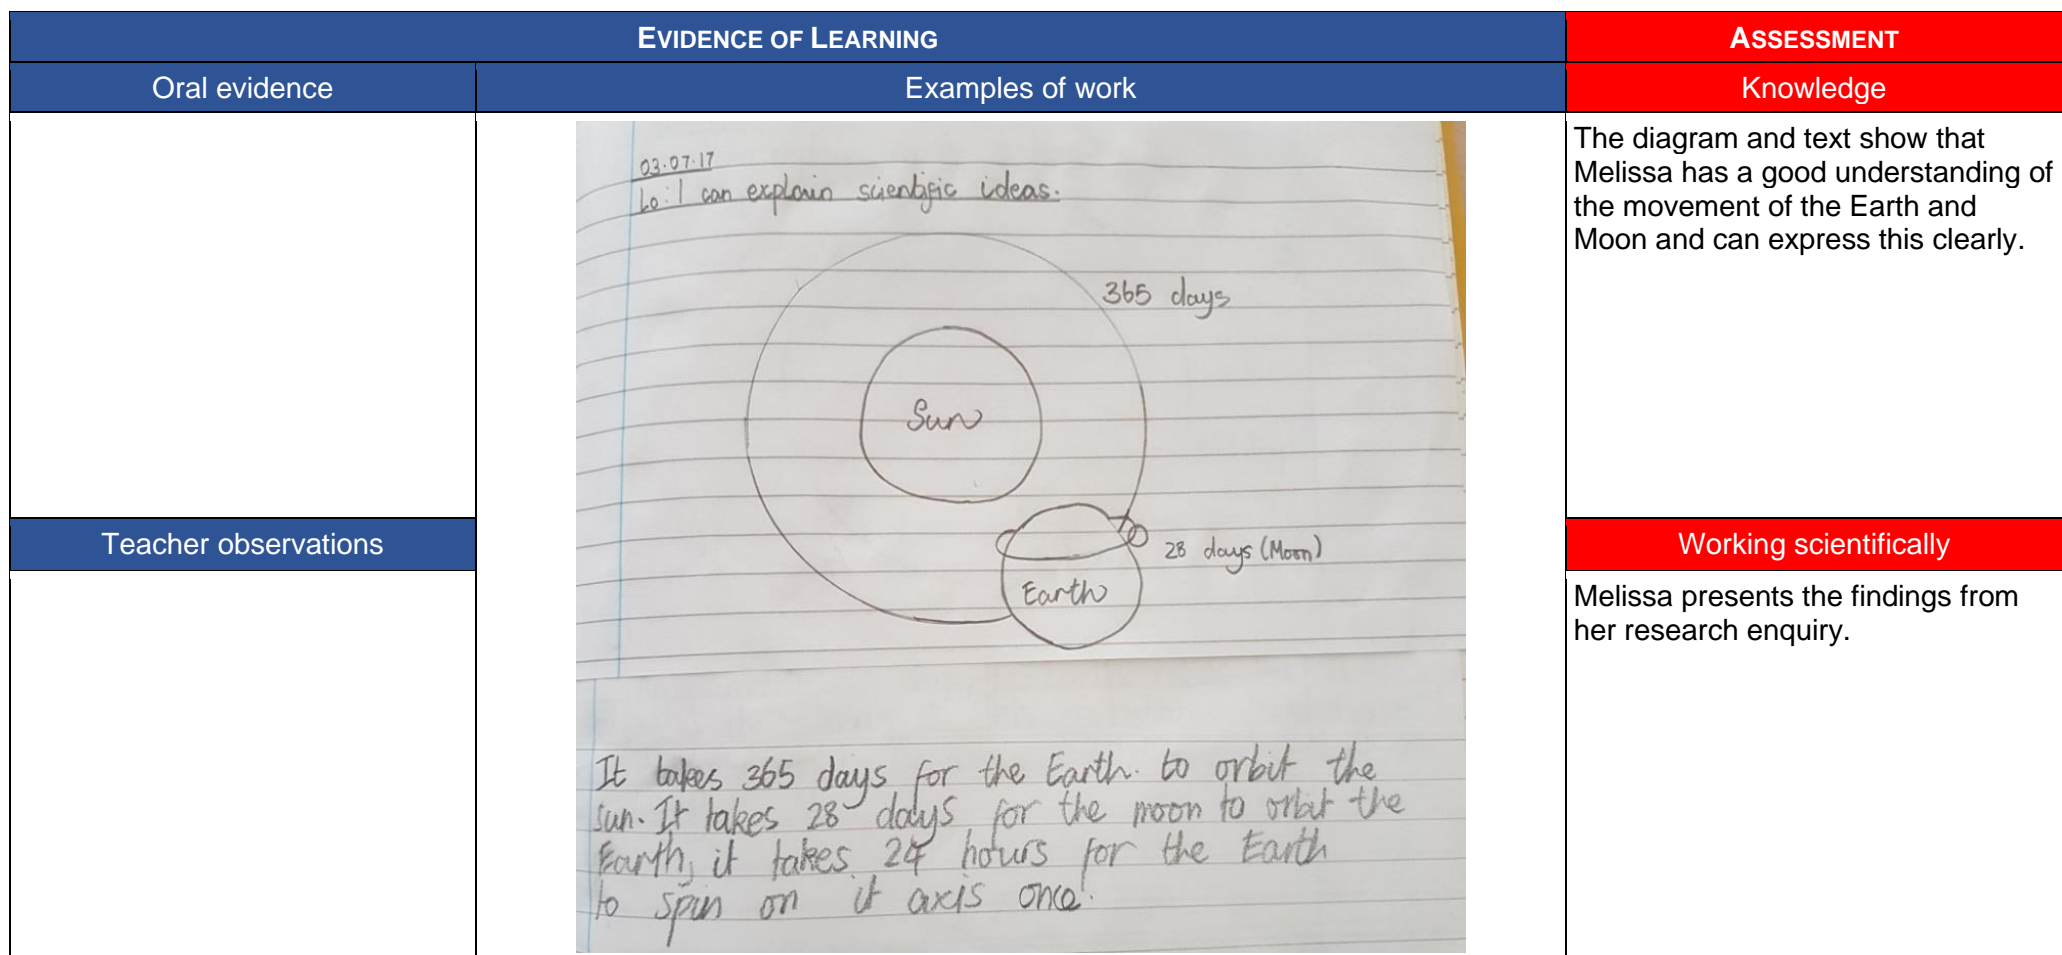 EVIDENCE OF LEARNING
ASSESSMENT
Oral evidence
Examples of work
Knowledge
03.07.17
Lo: I can explain scientific ideas.
365 days
Sun
28 days (Moon)
Earth
It takes 365 days for the Earth. to orbit the
sun. It takes 28 days for the moon to orbit the
Earth, it takes 24 hours for the Earth
to spin on it axis once.
The diagram and text show that
Melissa has a good understanding of
the movement of the Earth and
Moon and can express this clearly.
Teacher observations
Working scientifically
Melissa presents the findings from
her research enquiry.